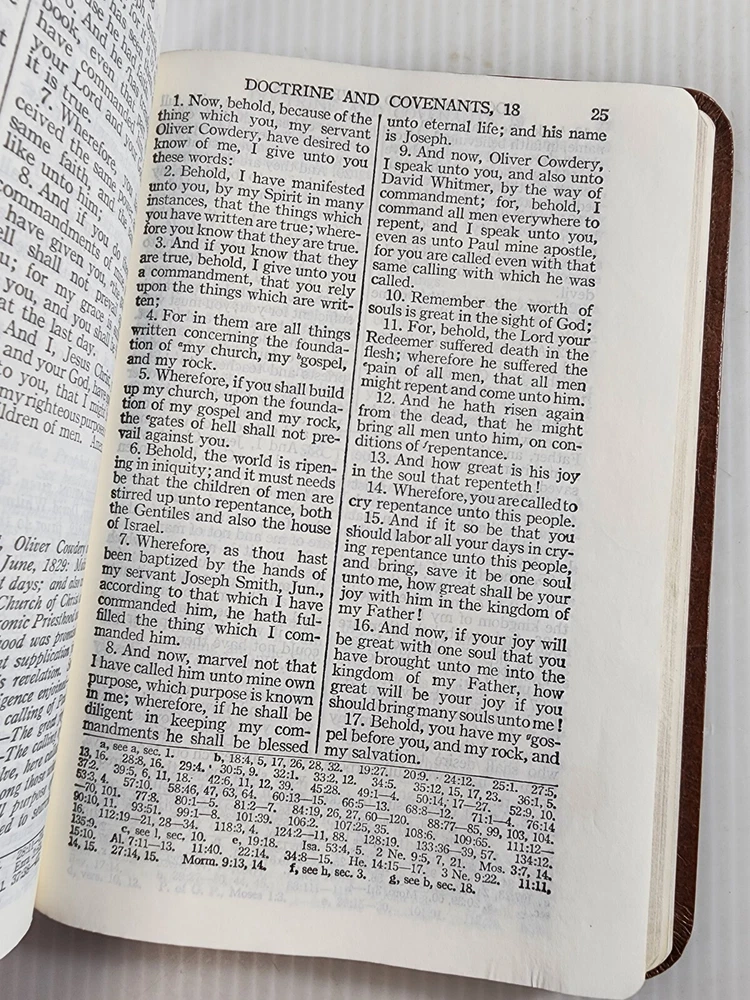 book, even that
have commanded
your Lord and you
it is true.
7. Wherefore, you
ceived the same power
same faith, and the
like unto him;
8. And if you do
commandments of mine
have given you, the
ell shall not prevail
u; for my grace is
you, and you shall
at the last day.
And I, Jesus Christ
and your God, have
to you, that I might
my righteous purposes
ildren of men. Amen
Oliver Cowdery
June, 1829:
t days; and also
Church of Christ
ronic Priesthood
hood was
t supplication
s revelation.
igence enjoined
calling of
—The great
—The calling
lve, here
ong those
l purpose
ed to
DOCTRINE AND COVENANTS, 18 25
1. Now, behold, because of the
thing which you, my servant
Oliver Cowdery, have desired to
know of me, I give unto you
these words:
2. Behold, I have manifested
unto you, by my Spirit in many
instances, that the things which
you have written are true; where-
fore you know that they are true.
3. And if you know that they
are true, behold, I give unto you
a commandment, that you rely
upon the things which are writ-
ten;
4. For in them are all things
written concerning the founda-
tion of ᵃmy church, my ᵇgospel,
and my rock.
5. Wherefore, if you shall build
up my church, upon the founda-
tion of my gospel and my rock,
the ᶜgates of hell shall not pre-
vail against you.
6. Behold, the world is ripen-
ing in iniquity; and it must needs
be that the children of men are
stirred up unto repentance, both
the Gentiles and also the house
of Israel.
7. Wherefore, as thou hast
been baptized by the hands of
my servant Joseph Smith, Jun.,
according to that which I have
commanded him, he hath ful-
filled the thing which I com-
manded him.
8. And now, marvel not that
I have called him unto mine own
purpose, which purpose is known
in me; wherefore, if he shall be
diligent in keeping my com-
mandments he shall be blessed
unto eternal life; and his name
is Joseph.
9. And now, Oliver Cowdery,
I speak unto you, and also unto
David Whitmer, by the way of
commandment; for, behold, I
command all men everywhere to
repent, and I speak unto you,
even as unto Paul mine apostle,
for you are called even with that
same calling with which he was
called.
10. Remember the worth of
souls is great in the sight of God;
11. For, behold, the Lord your
Redeemer suffered death in the
flesh; wherefore he suffered the
ᵉpain of all men, that all men
might repent and come unto him.
12. And he hath risen again
from the dead, that he might
bring all men unto him, on con-
ditions of ᶠrepentance.
13. And how great is his joy
in the soul that repenteth!
14. Wherefore, you are called to
cry repentance unto this people.
15. And if it so be that you
should labor all your days in cry-
ing repentance unto this people,
and bring, save it be one soul
unto me, how great shall be your
joy with him in the kingdom of
my Father!
16. And now, if your joy will
be great with one soul that you
have brought unto me into the
kingdom of my Father, how
great will be your joy if you
should bring many souls unto me!
17. Behold, you have my ᵍgos-
pel before you, and my rock, and
my salvation.
a, see a, sec. 1. b, 18:4, 5, 17, 26, 28, 32. 19:27. 20:9. 24:12. 25:1. 27:5,
13, 16. 28:8, 16. 29:4. 30:5, 9. 32:1. 33:2, 12. 34:5. 35:12, 15, 17, 23. 36:1, 5.
37:2. 39:5, 6, 11, 18. 42:6, 11, 12, 39. 45:28. 49:1—4. 50:14, 17—27. 52:9, 10.
53:3, 4. 57:10. 58:46, 47, 63, 64. 60:13—15. 66:5—13. 68:8—12. 71:1—4. 76:14
—70, 101. 77:8. 80:1—5. 81:2—7. 84:19, 26, 27, 60—120. 88:77—85, 99, 103, 104.
90:10, 11. 93:51. 99:1—8. 101:39. 106:2. 107:25, 35. 108:6. 109:65. 111:12—
16. 112:19—21, 28—34. 118:3, 4. 124:2—11, 88. 128:19. 133:36—39, 57. 134:12.
135:9. c, see l, sec. 10. e, 19:18. Isa. 53:4, 5. 2 Ne. 9:5, 7, 21. Mos. 3:7, 14.
15:10. Al. 7:11—13. 11:40. 22:14. 34:8—15. He. 14:15—17. 3 Ne. 9:22. 11:11,
14, 15. 27:14, 15. Morm. 9:13, 14. f, see h, sec. 3. g, see b, sec. 18.